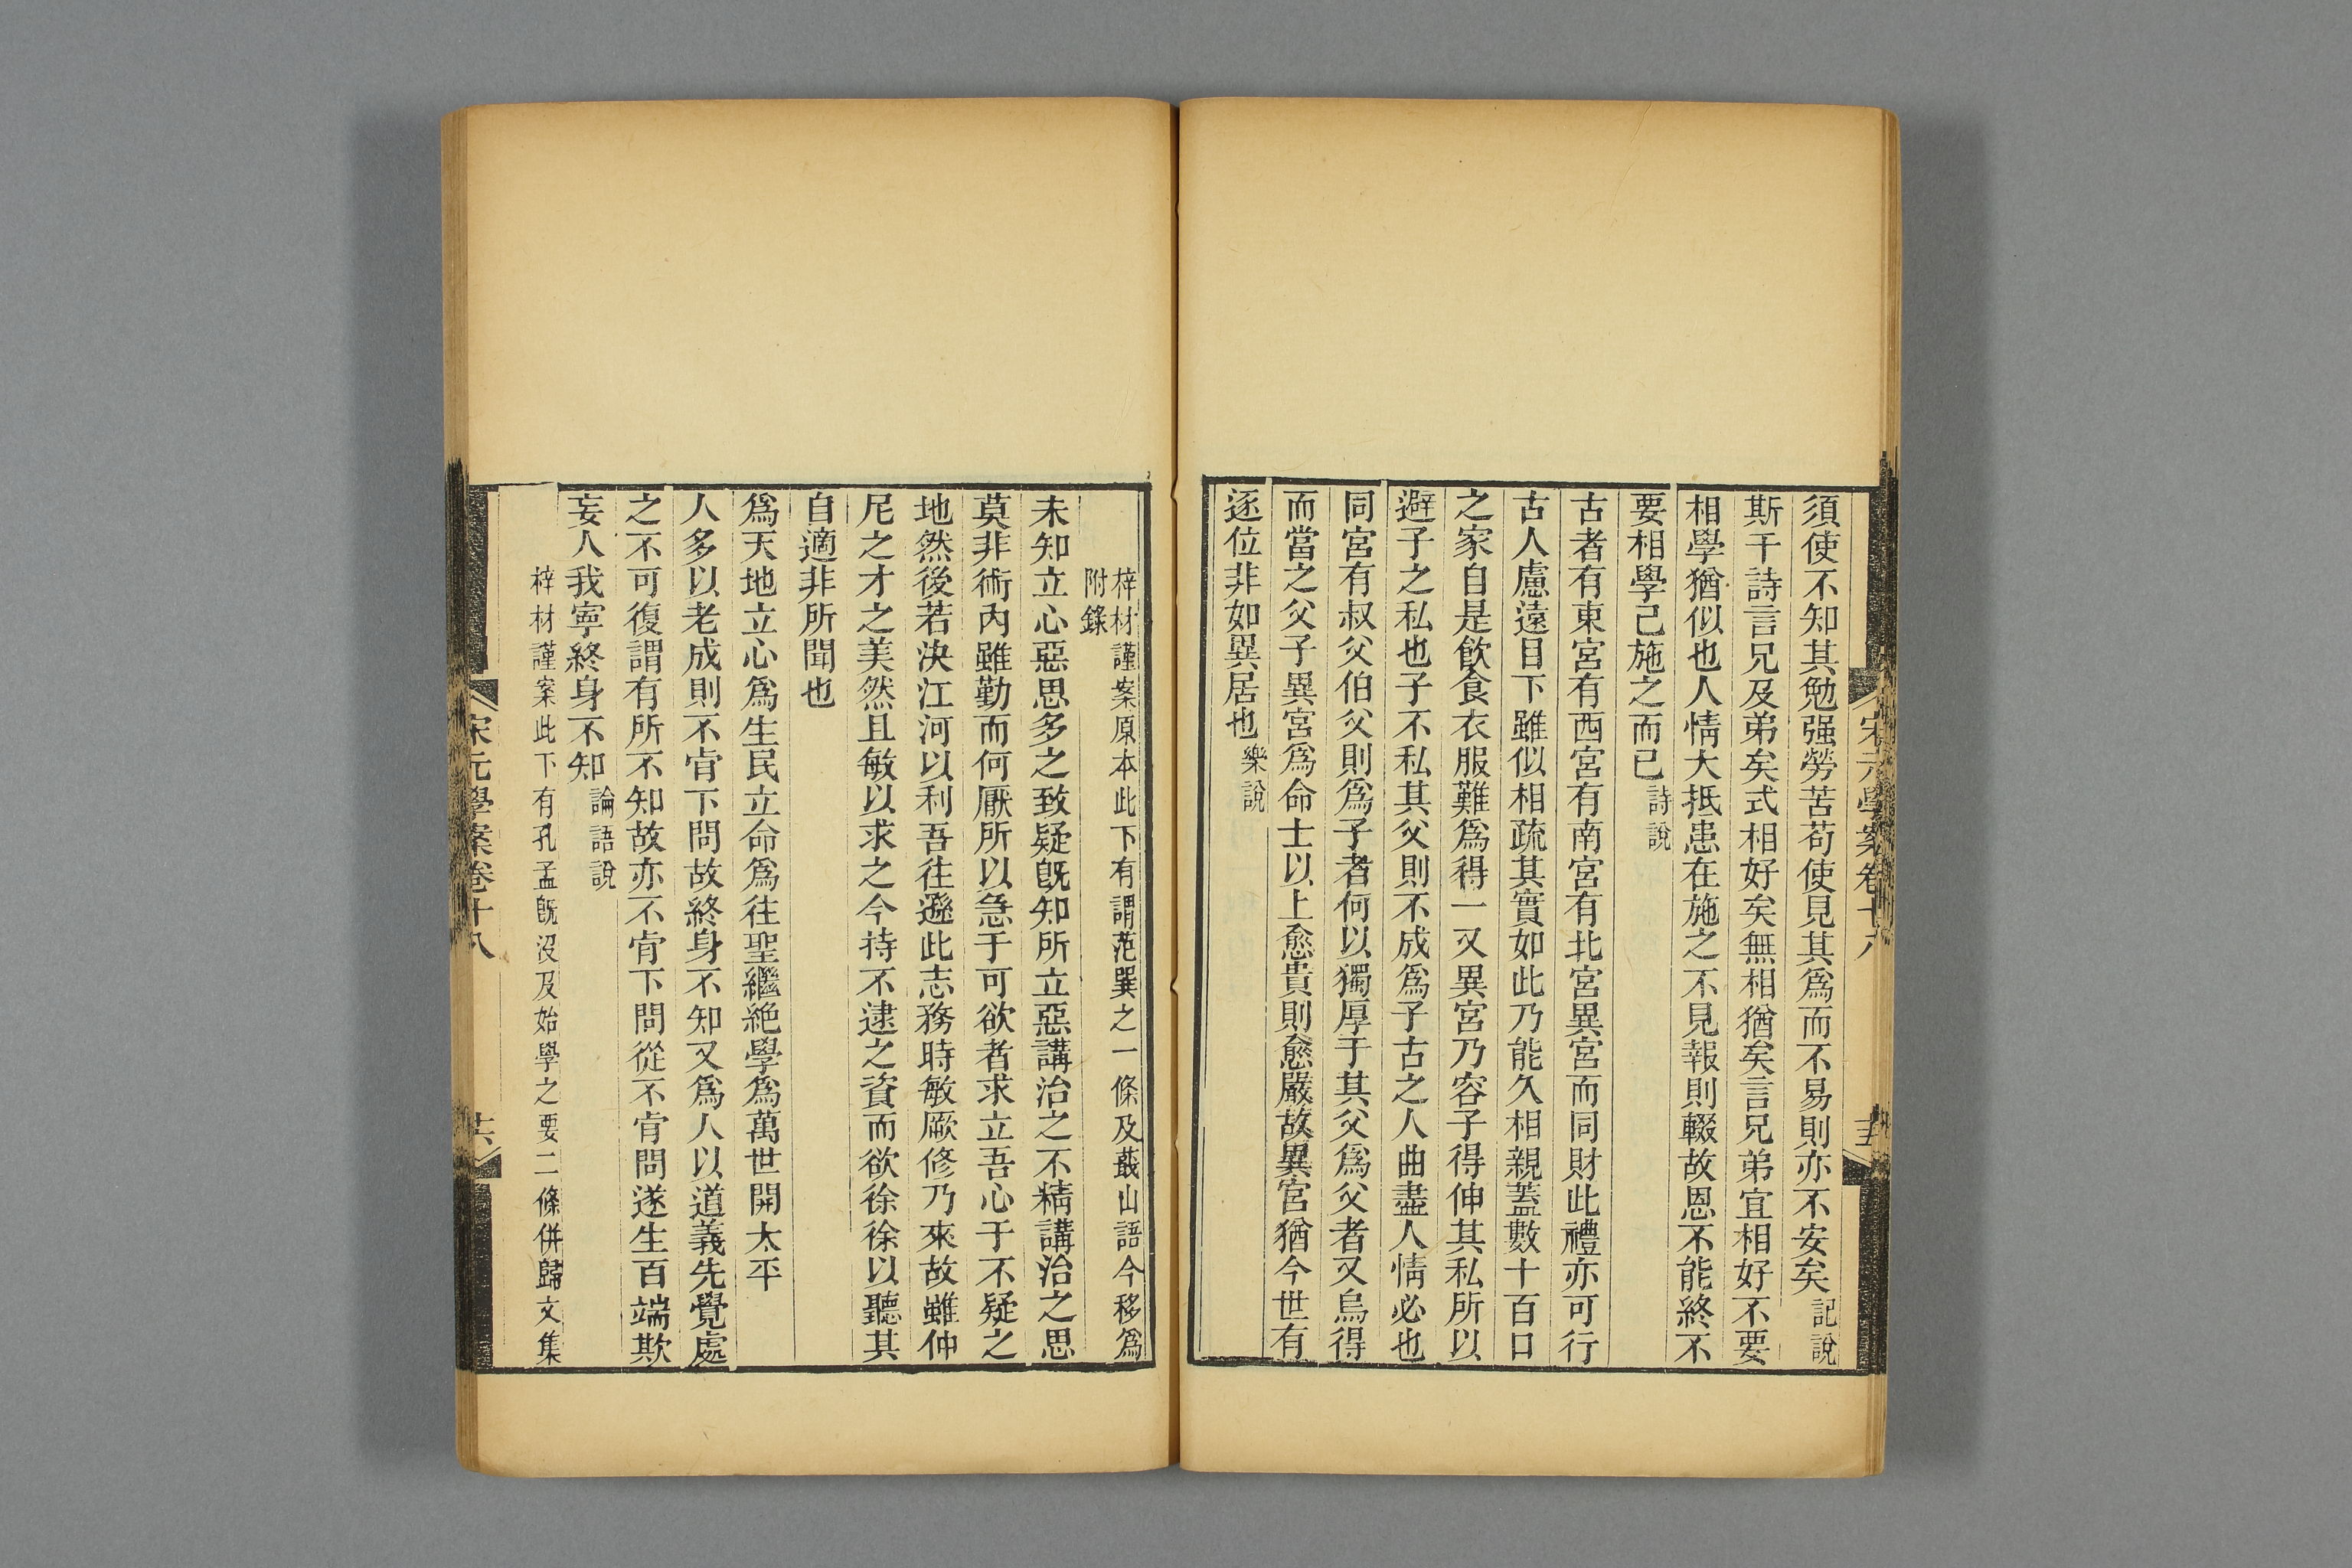 宋元學案卷十八
須使不知其勉强勞苦苟使見其爲而不易則亦不安矣記說
斯干詩言兄及弟矣式相好矣無相猶矣言兄弟宜相好不要
相學猶似也人情大抵患在施之不見報則輟故恩不能終不
要相學己施之而已詩說
古者有東宮有西宮有南宮有北宮異宮而同財此禮亦可行
古人慮遠目下雖似相疏其實如此乃能久相親蓋數十百口
之家自是飲食衣服難爲得一又異宮乃容子得伸其私所以
避子之私也子不私其父則不成爲子古之人曲盡人情必也
同宮有叔父伯父則爲子者何以獨厚于其父爲父者又烏得
而當之父子異宮爲命士以上愈貴則愈嚴故異宮猶今世有
逐位非如異居也樂說
梓材謹案原本此下有謂范巽之一條及蕺山語今移爲
附錄
未知立心惡思多之致疑旣知所立惡講治之不精講治之思
莫非術內雖勤而何厭所以急于可欲者求立吾心于不疑之
地然後若決江河以利吾往遜此志務時敏厥修乃來故雖仲
尼之才之美然且敏以求之今持不逮之資而欲徐徐以聽其
自適非所聞也
爲天地立心爲生民立命爲往聖繼絶學爲萬世開太平
人多以老成則不肯下問故終身不知又爲人以道義先覺處
之不可復謂有所不知故亦不肯下問從不肯問遂生百端欺
妄人我寧終身不知論語說
梓材謹案此下有孔孟旣沒及始學之要二條併歸文集
宋元學案卷十八